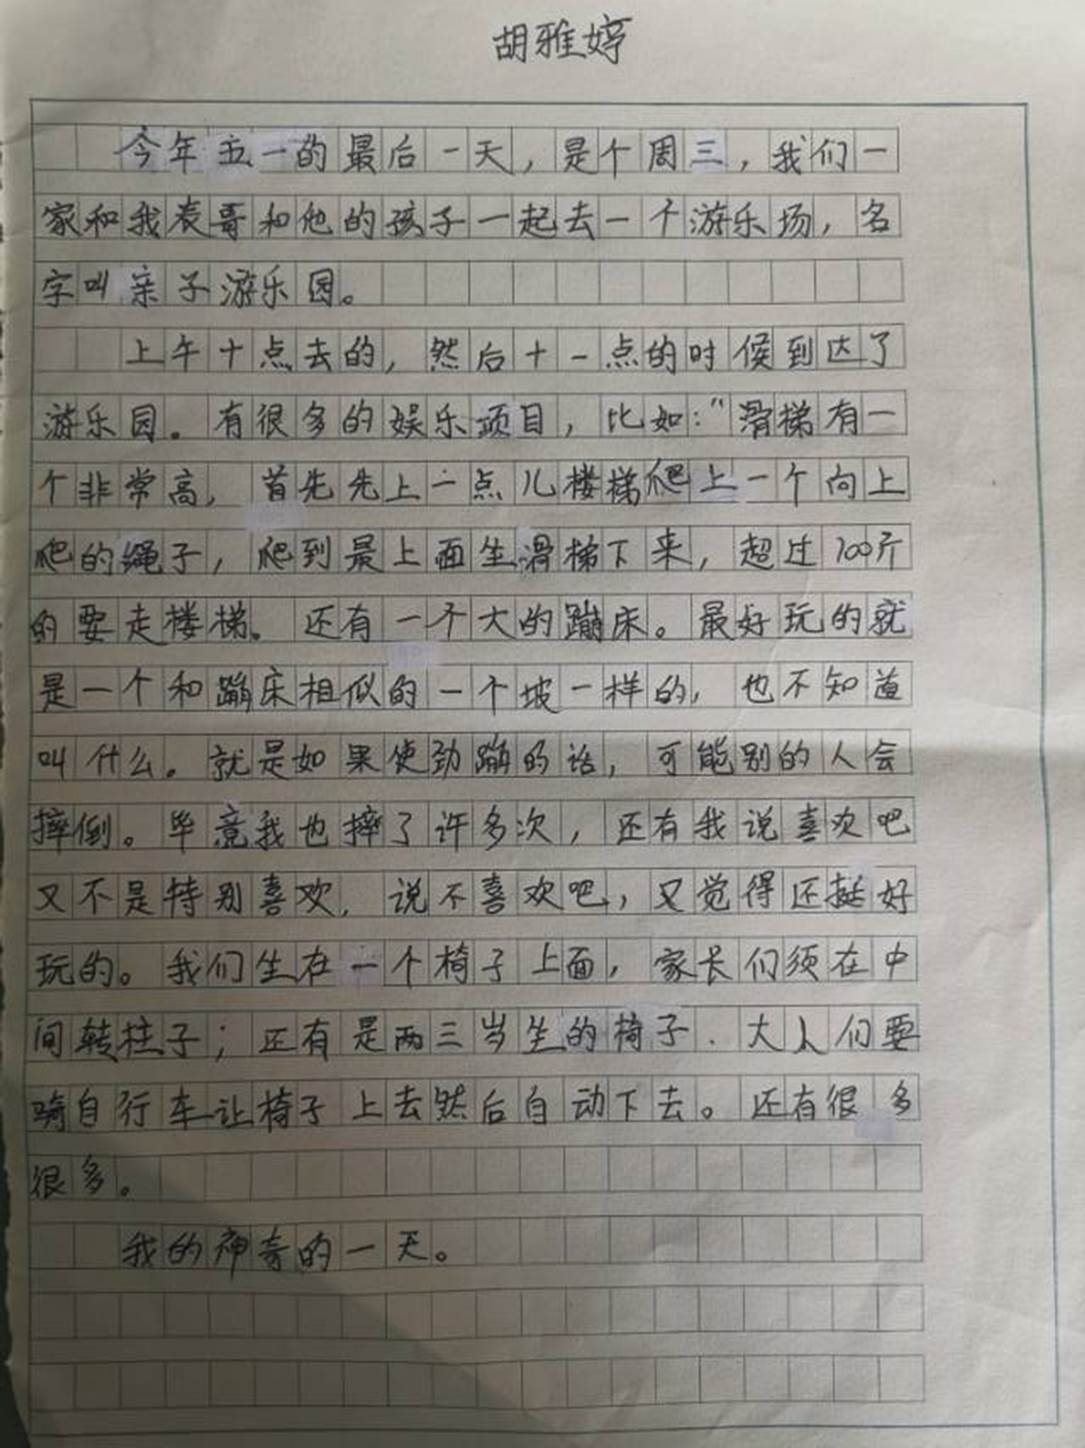 胡雅婷
今年五一的最后一天，是个周三，我们一
家和我表哥和他的孩子一起去一个游乐场，名
字叫亲子游乐园。
上午十点去的，然后十一点的时候到达了
游乐园。有很多的娱乐项目，比如：“滑梯有一
个非常高，首先先上一点儿楼梯爬上一个向上
爬的绳子，爬到最上面坐滑梯下来，超过100斤
的要走楼梯。还有一个大的蹦床。最好玩的就
是一个和蹦床相似的一个坡一样的，也不知道
叫什么。就是如果使劲蹦的话，可能别的人会
摔倒。毕竟我也摔了许多次，还有我说喜欢吧
又不是特别喜欢，说不喜欢吧，又觉得还挺好
玩的。我们坐在一个椅子上面，家长们须在中
间转柱子；还有是两三岁坐的椅子．大人们要
骑自行车让椅子上去然后自动下去。还有很多
很多。
我的神奇的一天。